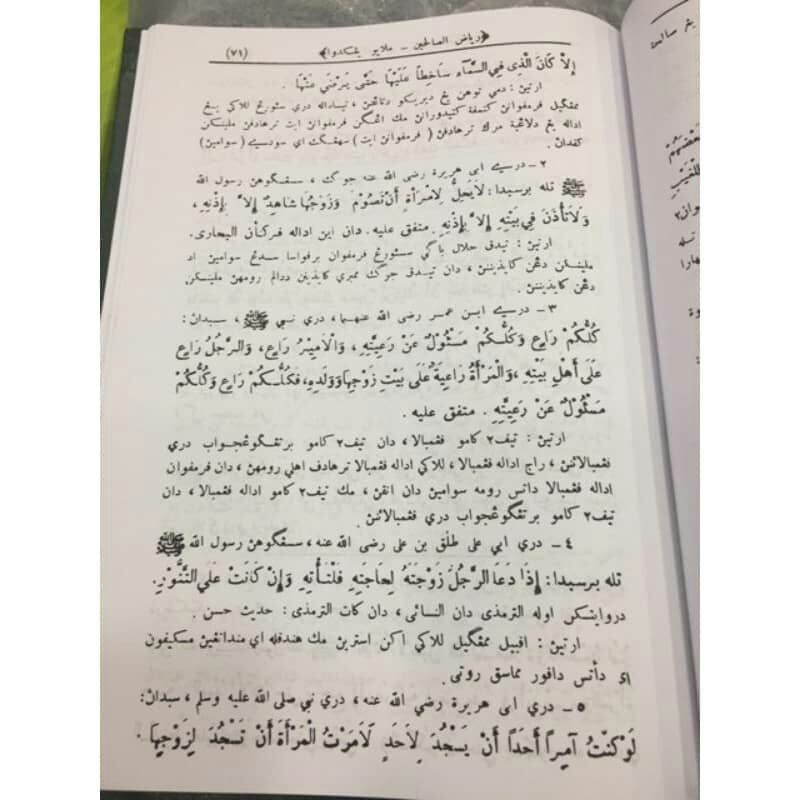 ﴿رياض الصالحين ــ ملايو يڠكدوا﴾ (٧١)
إِلاَّ كَانَ الَّذِي فِي السَّمَآءِ سَاخِطاً عَلَيْهَا حَتَّى يَرْضَى عَنْهَا .
ارتين : دمي توهن يڠ ديريكو دتاڠن ، تيداله دري سئورڠ للاكي يڠ
ممڠگيل فرمفوان كتمفة تيدورن مك اڠگن فرمفوان ايت ترهادفن ملينكن
اداله يڠ دلاڠية مرك ترهادفن ( فرمفوان ايت ) سهيڠگ اي سودسيي ( سوامين )
كفدان .
٢ ــ درسيي ابى هريرة رضى الله عنه جوگ ، سسڠگوهن رسول الله
ﷺ تله برسبدا : لاَيَحِلُّ لِامْرَأَةٍ أَنْ تَصُوْمَ وَزَوْجُهَا شَاهِدٌ إِلاَّ بِإِذْنِهِ ،
وَلاَتَأْذَنَ فِي بَيْتِهِ إِلاَّ بِإِذْنِهِ . متفق عليه . دان اين اداله فركتأن البخارى .
ارتين : تيدق حلال باگي سئورڠ فرمفوان برفواسا سدڠ سوامين اد
ملينكن دڠن كايذينن ، دان تيدق جوگ ممبري كايذينن ددالم رومهن ملينكن
دڠن كايذينن .
٣ ــ درسيي ابن عمر رضى الله عنهما ، دري نبي ﷺ ، سبدان :
كُلُّكُمْ رَاعٍ وَكُلُّكُمْ مَسْئُوْلٌ عَنْ رَعِيَّتِهِ ، وَالْأَمِيْرُ رَاعٍ ، وَالرَّجُلُ رَاعٍ
عَلَى أَهْلِ بَيْتِهِ ، وَالْمَرْأَةُ رَاعِيَةٌ عَلَى بَيْتِ زَوْجِهَا وَوَلَدِهِ ، فَكُلُّكُمْ رَاعٍ وَكُلُّكُمْ
مَسْئُوْلٌ عَنْ رَعِيَّتِهِ . متفق عليه .
ارتين : تيف٢ كامو فڠمبالا ، دان تيف٢ كامو برتڠگوڠجواب دري
فڠمبالائن ، راج اداله فڠمبالا ، للاكي اداله فڠمبالا ترهادف اهلي رومهن ، دان فرمفوان
اداله فڠمبالا داتس رومه سوامين دان انقن ، مك تيف٢ كامو اداله فڠمبالا ، دان
تيف٢ كامو برتڠگوڠجواب دري فڠمبالائن .
٤ ــ دري ابي على طلق بن على رضى الله عنه ، سسڠگوهن رسول الله ﷺ
تله برسبدا : إِذَا دَعَا الرَّجُلُ زَوْجَتَهُ لِحَاجَتِهِ فَلْتَأْتِهِ وَإِنْ كَانَتْ عَلَى التَّنُّوْرِ .
درواياتكن اوله الترمذى دان النسائى ، دان كات الترمذى : حديث حسن .
ارتين : افبيل ممڠگيل للاكي اكن استرين مك هندقله اي منداتڠين مسكيفون
اي داتس دافور مماسق روتي .
٥ ــ دري ابى هريرة رضى الله عنه ، دري نبي صلى الله عليه وسلم ، سبدان :
لَوْ كُنْتُ آمِراً أَحَداً أَنْ يَسْجُدَ لِأَحَدٍ لَأَمَرْتُ الْمَرْأَةَ أَنْ تَسْجُدَ لِزَوْجِهَا .